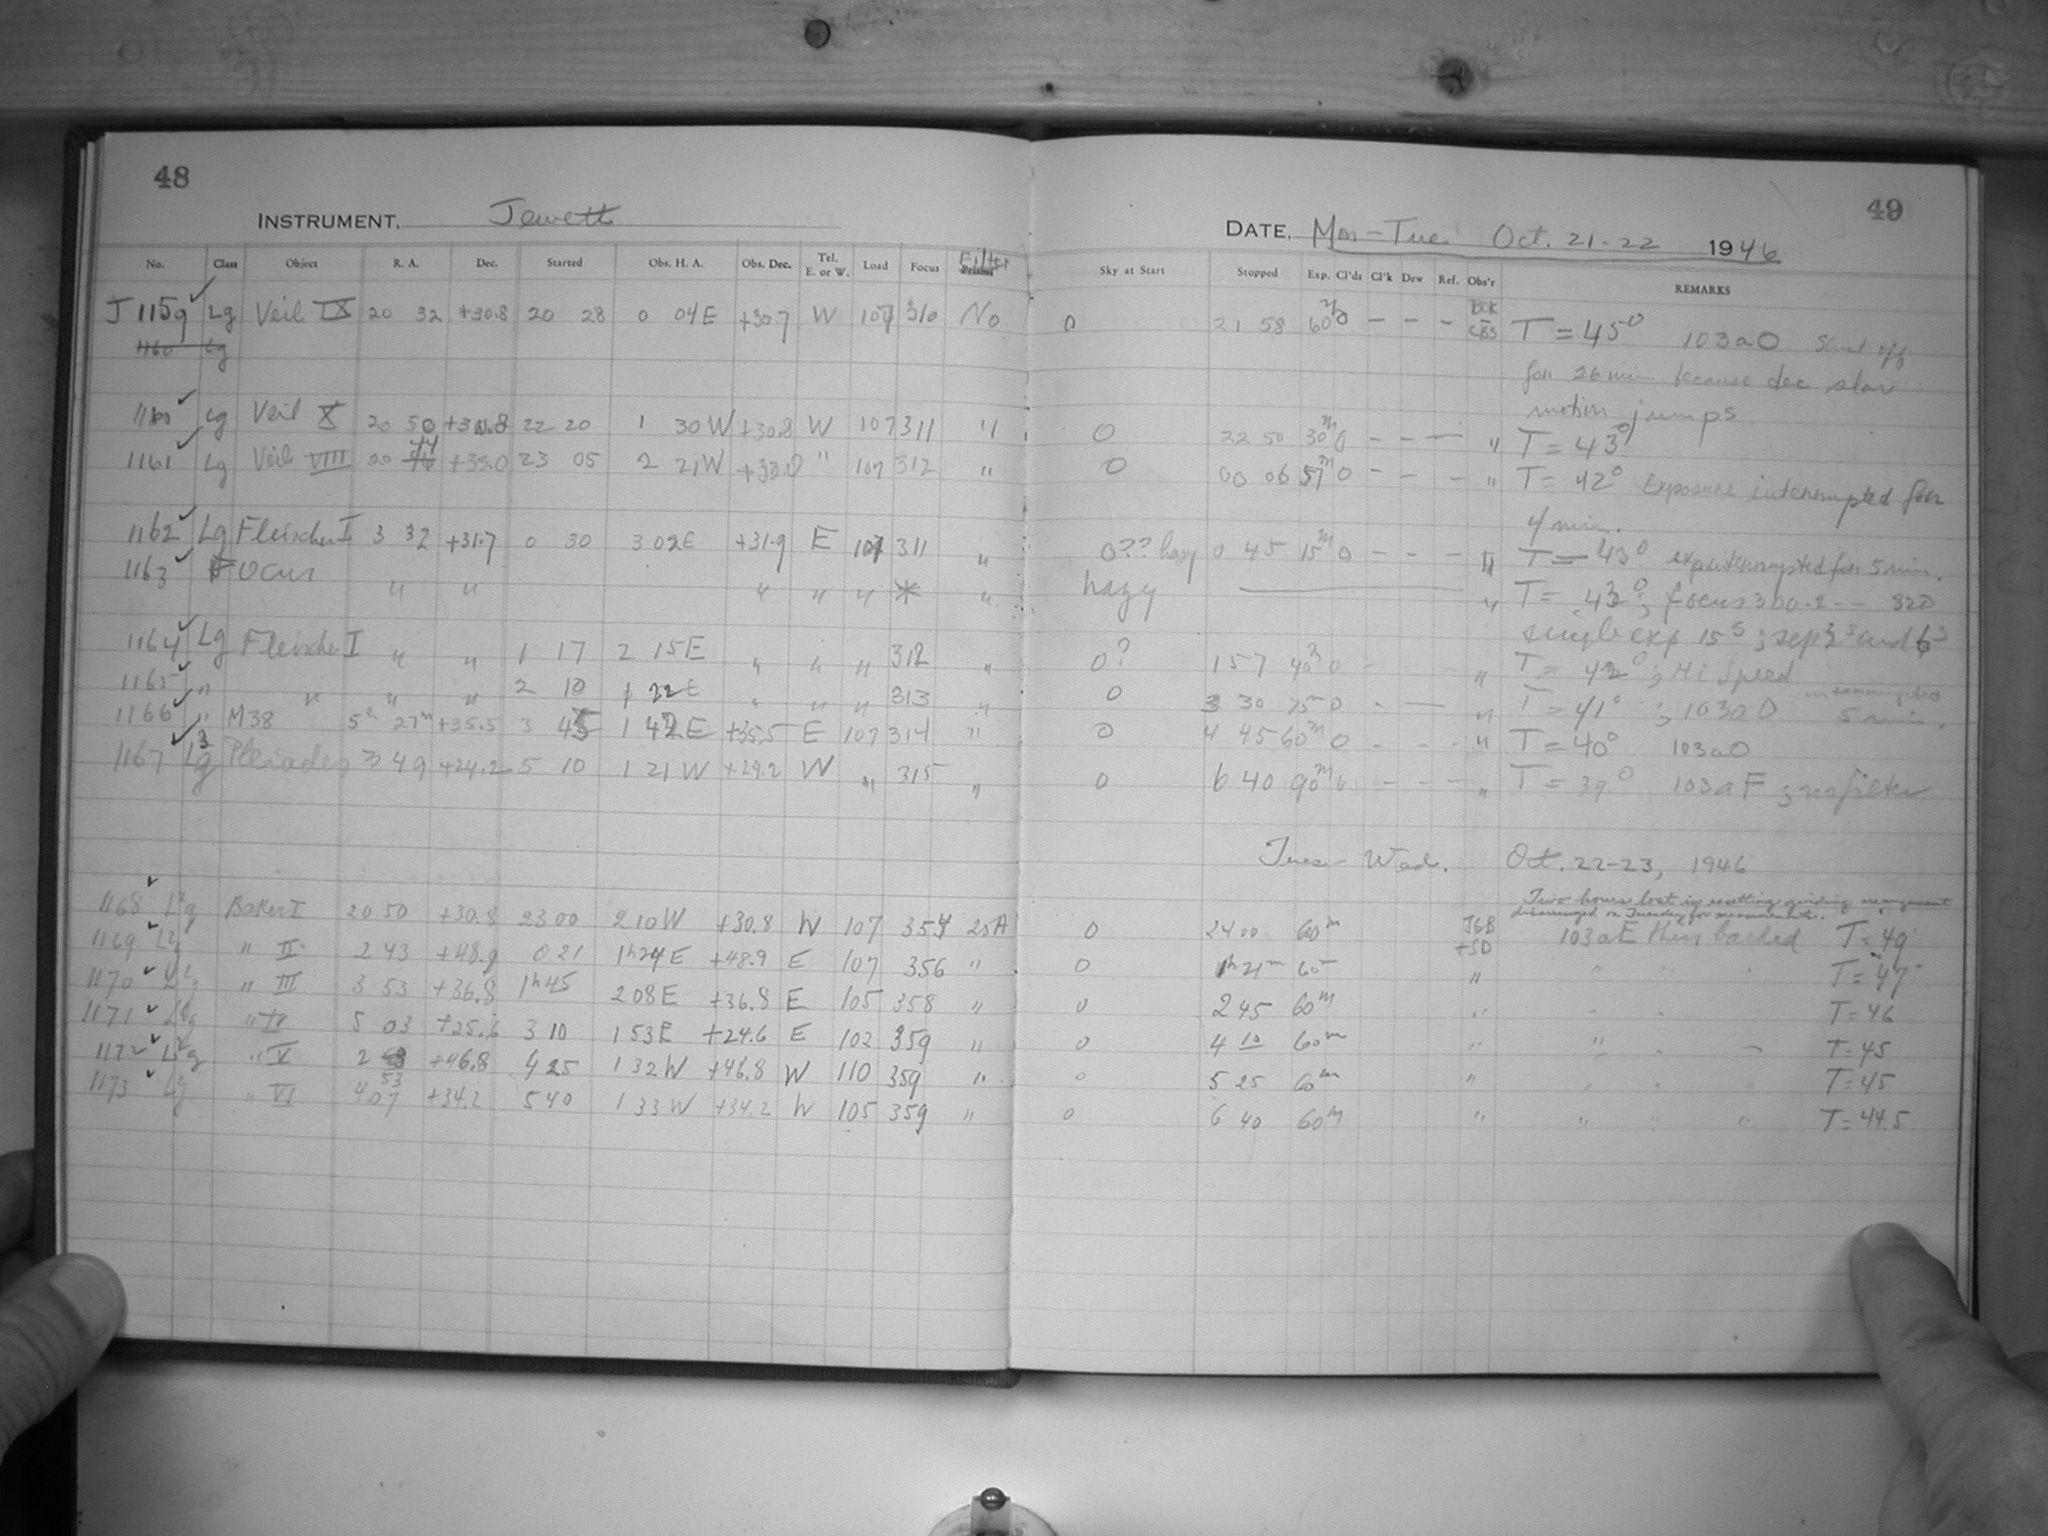 48
INSTRUMENT, Jewett
No. Class Object R. A. Dec. Started Obs. H. A. Obs. Dec. Tel. E. or W. Load Focus Prisms Filter
J 1159 Lg Veil IX 20 32 +30.8 20 28 0 04E +30.7 W 107 310 No
1160 Lg
1160 Lg Veil X 20 50 +30.8 22 20 1 30W +30.8 W 107 311 "
1161 Lg Veil VIII 20 44 +33.0 23 05 2 21W +33.0 " 107 312 "
1162 Lg Fleischer I 3 32 +31.7 0 30 3 02E +31.9 E 107 311 "
1163 Focus " " " " " * "
1164 Lg Fleischer I " " 1 17 2 15E " " " 312 "
1165 " " " " 2 10 1 22E " " " 313 "
1166 " M38 5h 27m +35.5 3 45 1 42E +35.5 E 107 314 "
1167 Lg Pleiades 3 49 +24.2 5 10 1 21W +24.2 W " 315 "
1168 Lg Baker I 20 50 +30.8 23 00 2 10W +30.8 W 107 354 25A
1169 Lg " II 2 43 +48.9 0 21 1h24E +48.9 E 107 356 "
1170 Lg " III 3 53 +36.8 1h45 2 08E +36.8 E 105 358 "
1171 Lg " IV 5 03 +25.6 3 10 1 53E +24.6 E 102 359 "
1172 Lg " V 2 53 +46.8 4 25 1 32W +46.8 W 110 359 "
1173 Lg " VI 4 07 +34.2 5 40 1 33W +34.2 W 105 359 "
49
DATE, Mon-Tue. Oct. 21-22 1946
Sky at Start Stopped Exp. Cl'ds Cl'k Dew Ref. Obs'r REMARKS
0 21 58 60m 0 - - - BOK CBS T = 45° 103aO Shut off
for 26 min because dec slow
motion jumps
0 22 50 30m 0 - - - " T = 43°
0 00 06 57m 0 - - - " T = 42° Exposure interrupted for
4 min.
0?? hazy 0 45 15m 0 - - - " T = 43° exp interrupted for 5 min.
hazy " T = 43°; focus 300.2 -- 320
single exp 15s; sep 3s and 6s
0? 1 57 40m 0 - - - " T = 42°; Hi Speed
0 3 30 75m 0 - - " T = 41°; 103aO interrupted 5 min.
0 4 45 60m 0 - - - " T = 40° 103aO
0 6 40 90m 0 - - - " T = 39° 103aF; no filter
Tues - Wed. Oct. 22-23, 1946
Two hours lost in resetting guiding arrangement
disarranged on Tuesday for measurements.
0 24 00 60m JGB +SD 103aE thin backed T = 49
0 1h 21m 60m " " " " T = 47
0 2 45 60m " T = 46
0 4 10 60m " " T = 45
0 5 25 60m " T = 45
0 6 40 60m " " " " T = 44.5